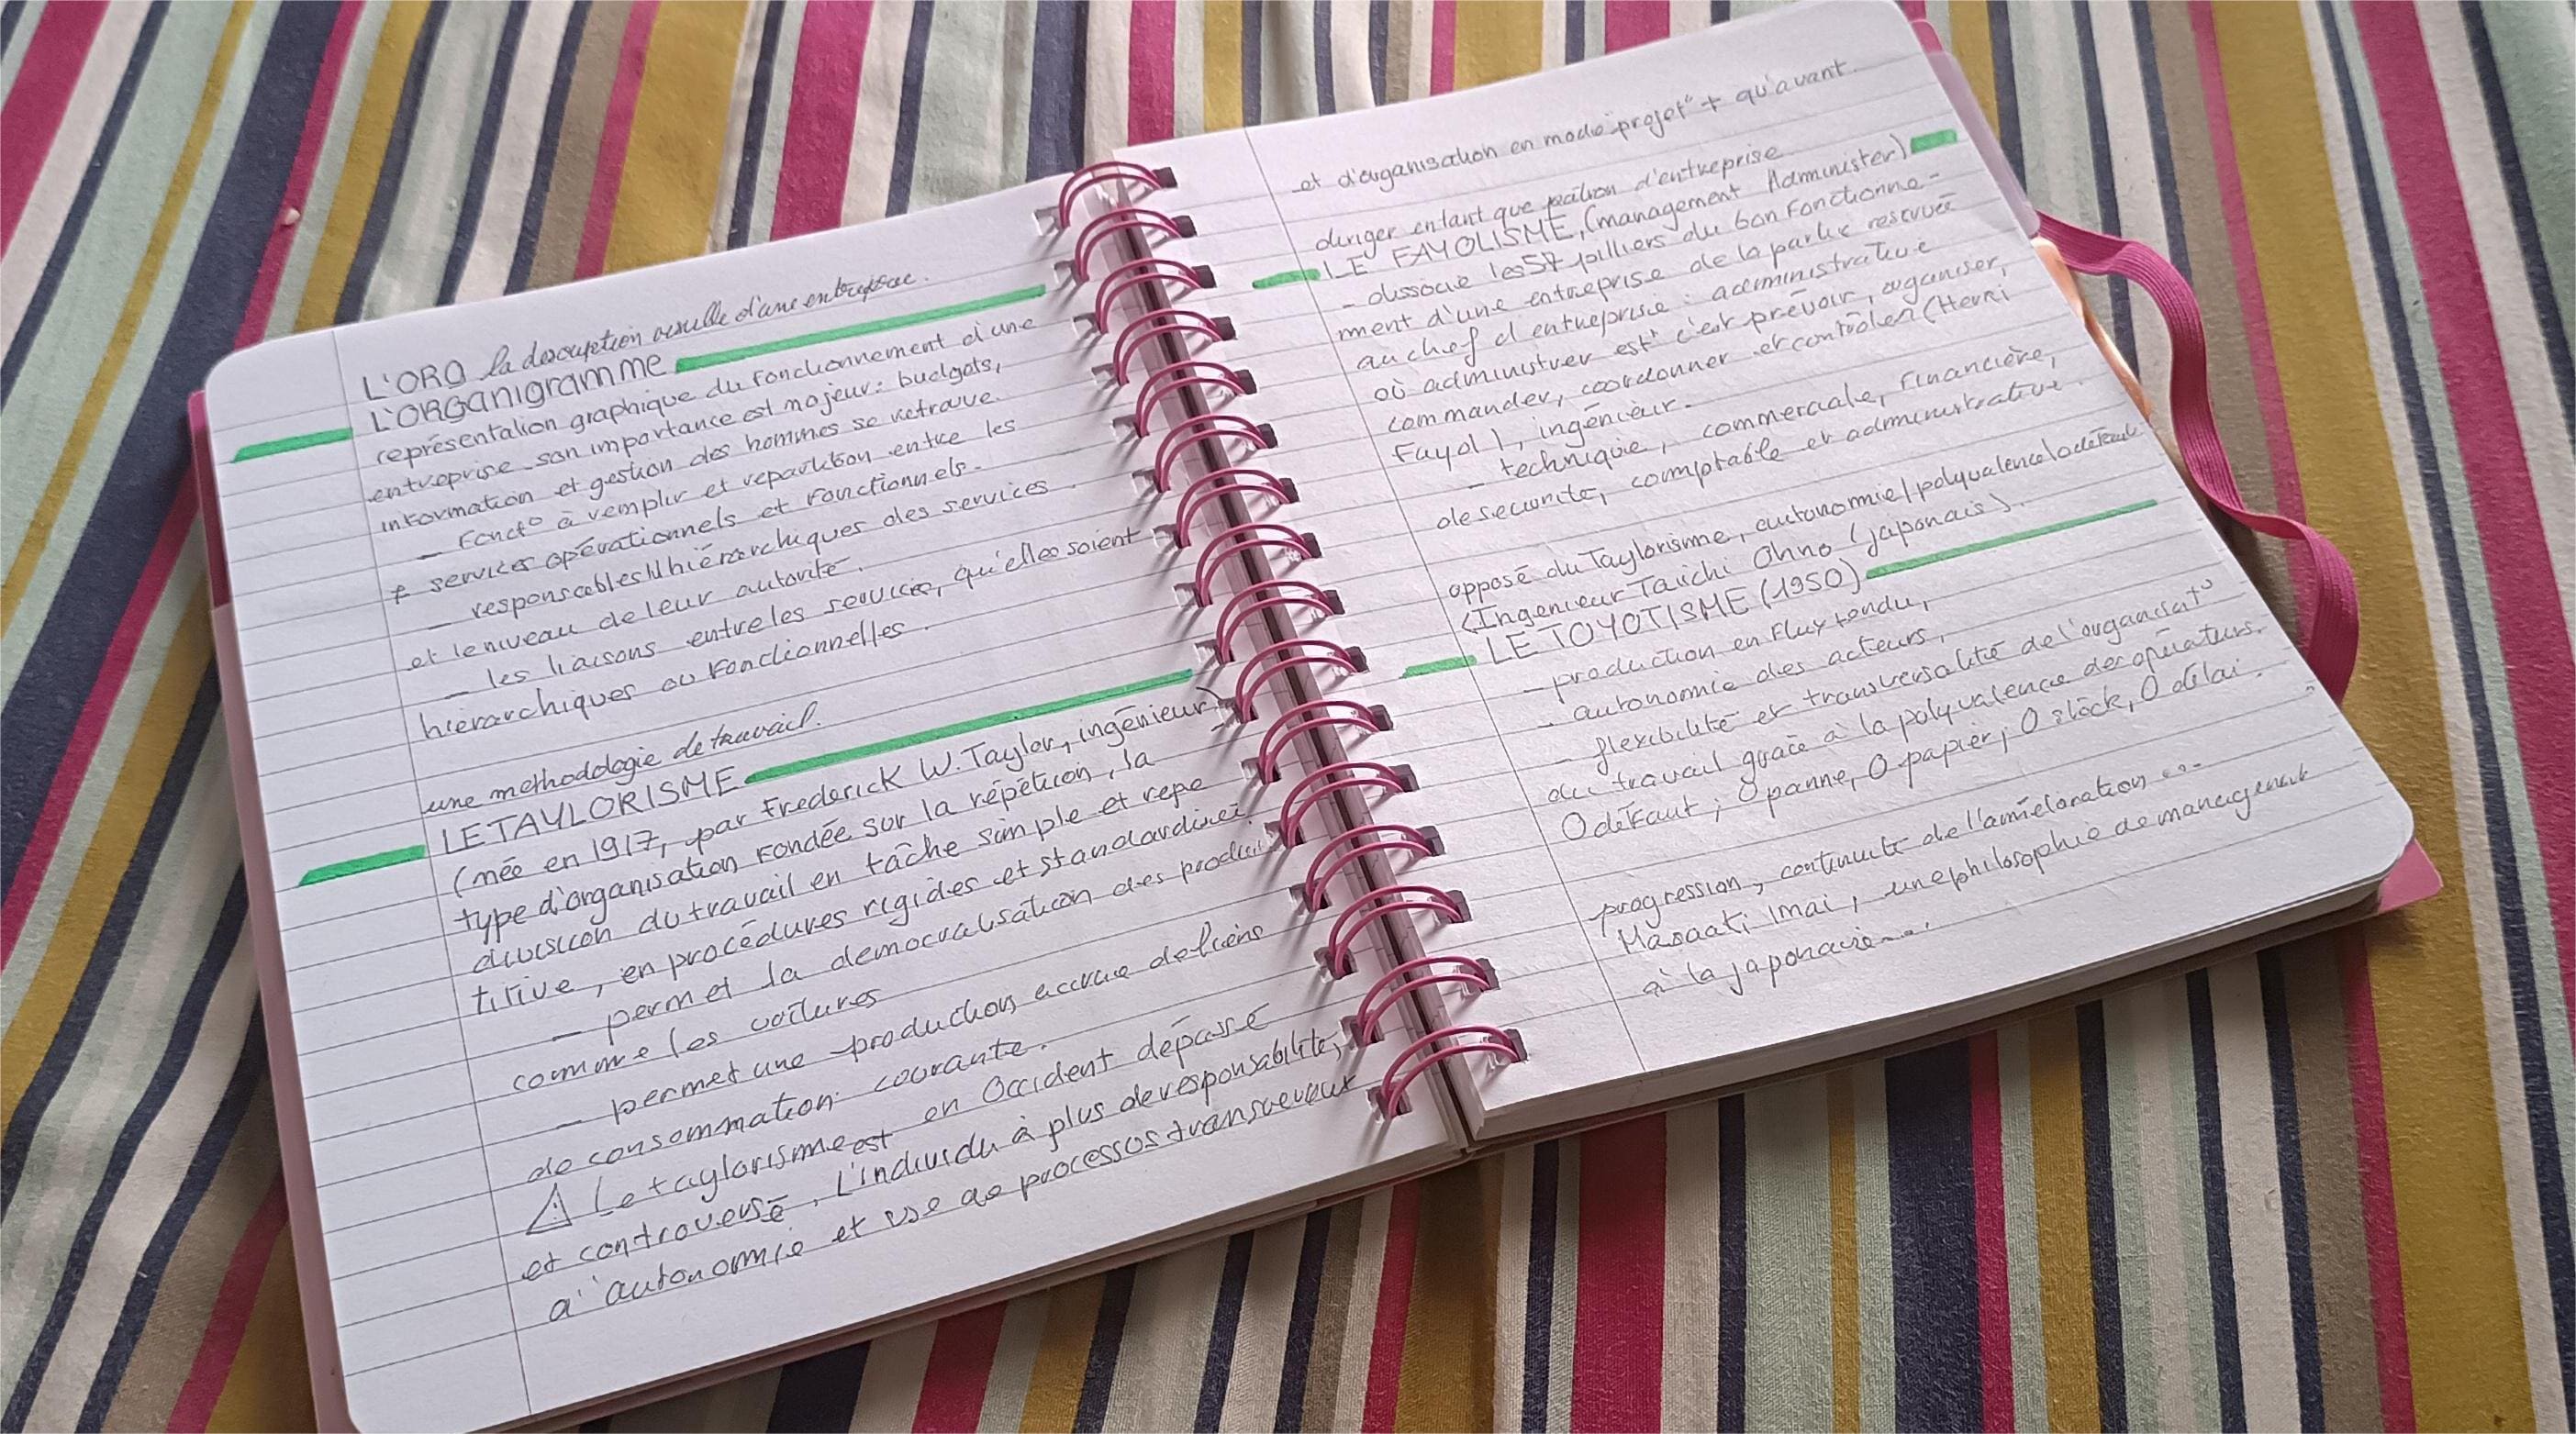 L'ORO la description visuelle d'une entreprise.
L'ORGANIGRAMME
représentation graphique du fonctionnement d'une
entreprise son importance est majeur : budgets,
information et gestion des hommes se retrouve.
- Fonct° à remplir et repartition entre les
≠ services opérationnels et fonctionnels.
- responsables hiérarchiques des services
et le niveau de leur autorité.
- les liaisons entre les services, qu'elles soient
hiérarchiques ou fonctionnelles.
une methodologie de travail.
LE TAYLORISME
(née en 1917, par Frederick W. Taylor, ingénieur)
type d'organisation fondée sur la répétition, la
division du travail en tâche simple et repe
titive, en procédures rigides et standardisée.
- permet la democratisation des produi
comme les voitures
- permet une production accrue de biens
de consommation courante.
⚠ Le taylorisme est en Occident dépassé
et controversé, L'individu à plus de responsabilité,
d'autonomie et use de processus transverseaux
et d'organisation en mode "projet" + qu'avant.
diriger en tant que patron d'entreprise
LE FAYOLISME, (management Administer)
- dissocie les 57 pilliers du bon fonctionne-
ment d'une entreprise de la partie reservée
au chef d'entreprise : administrative
où administrer est c'est prévoir, organiser,
commander, coordonner et contrôler (Henri
Fayol), ingénieur.
- technique, commerciale, financière,
de securité, comptable et administrative.
opposé du Taylorisme, autonomie/polyvalence/0 défaut
(Ingenieur Taiichi Ohno (japonais).
LE TOYOTISME (1950)
- production en flux tendu,
- autonomie des acteurs,
- flexibilité et transversalité de l'organisat°
du travail grace à la polyvalence des opérateurs.
0 défaut ; 0 panne, 0 papier, 0 stock, 0 délai.
progression, continuité de l'amélioration ...
Masaati Imai, une philosophie de management
à la japonaise....